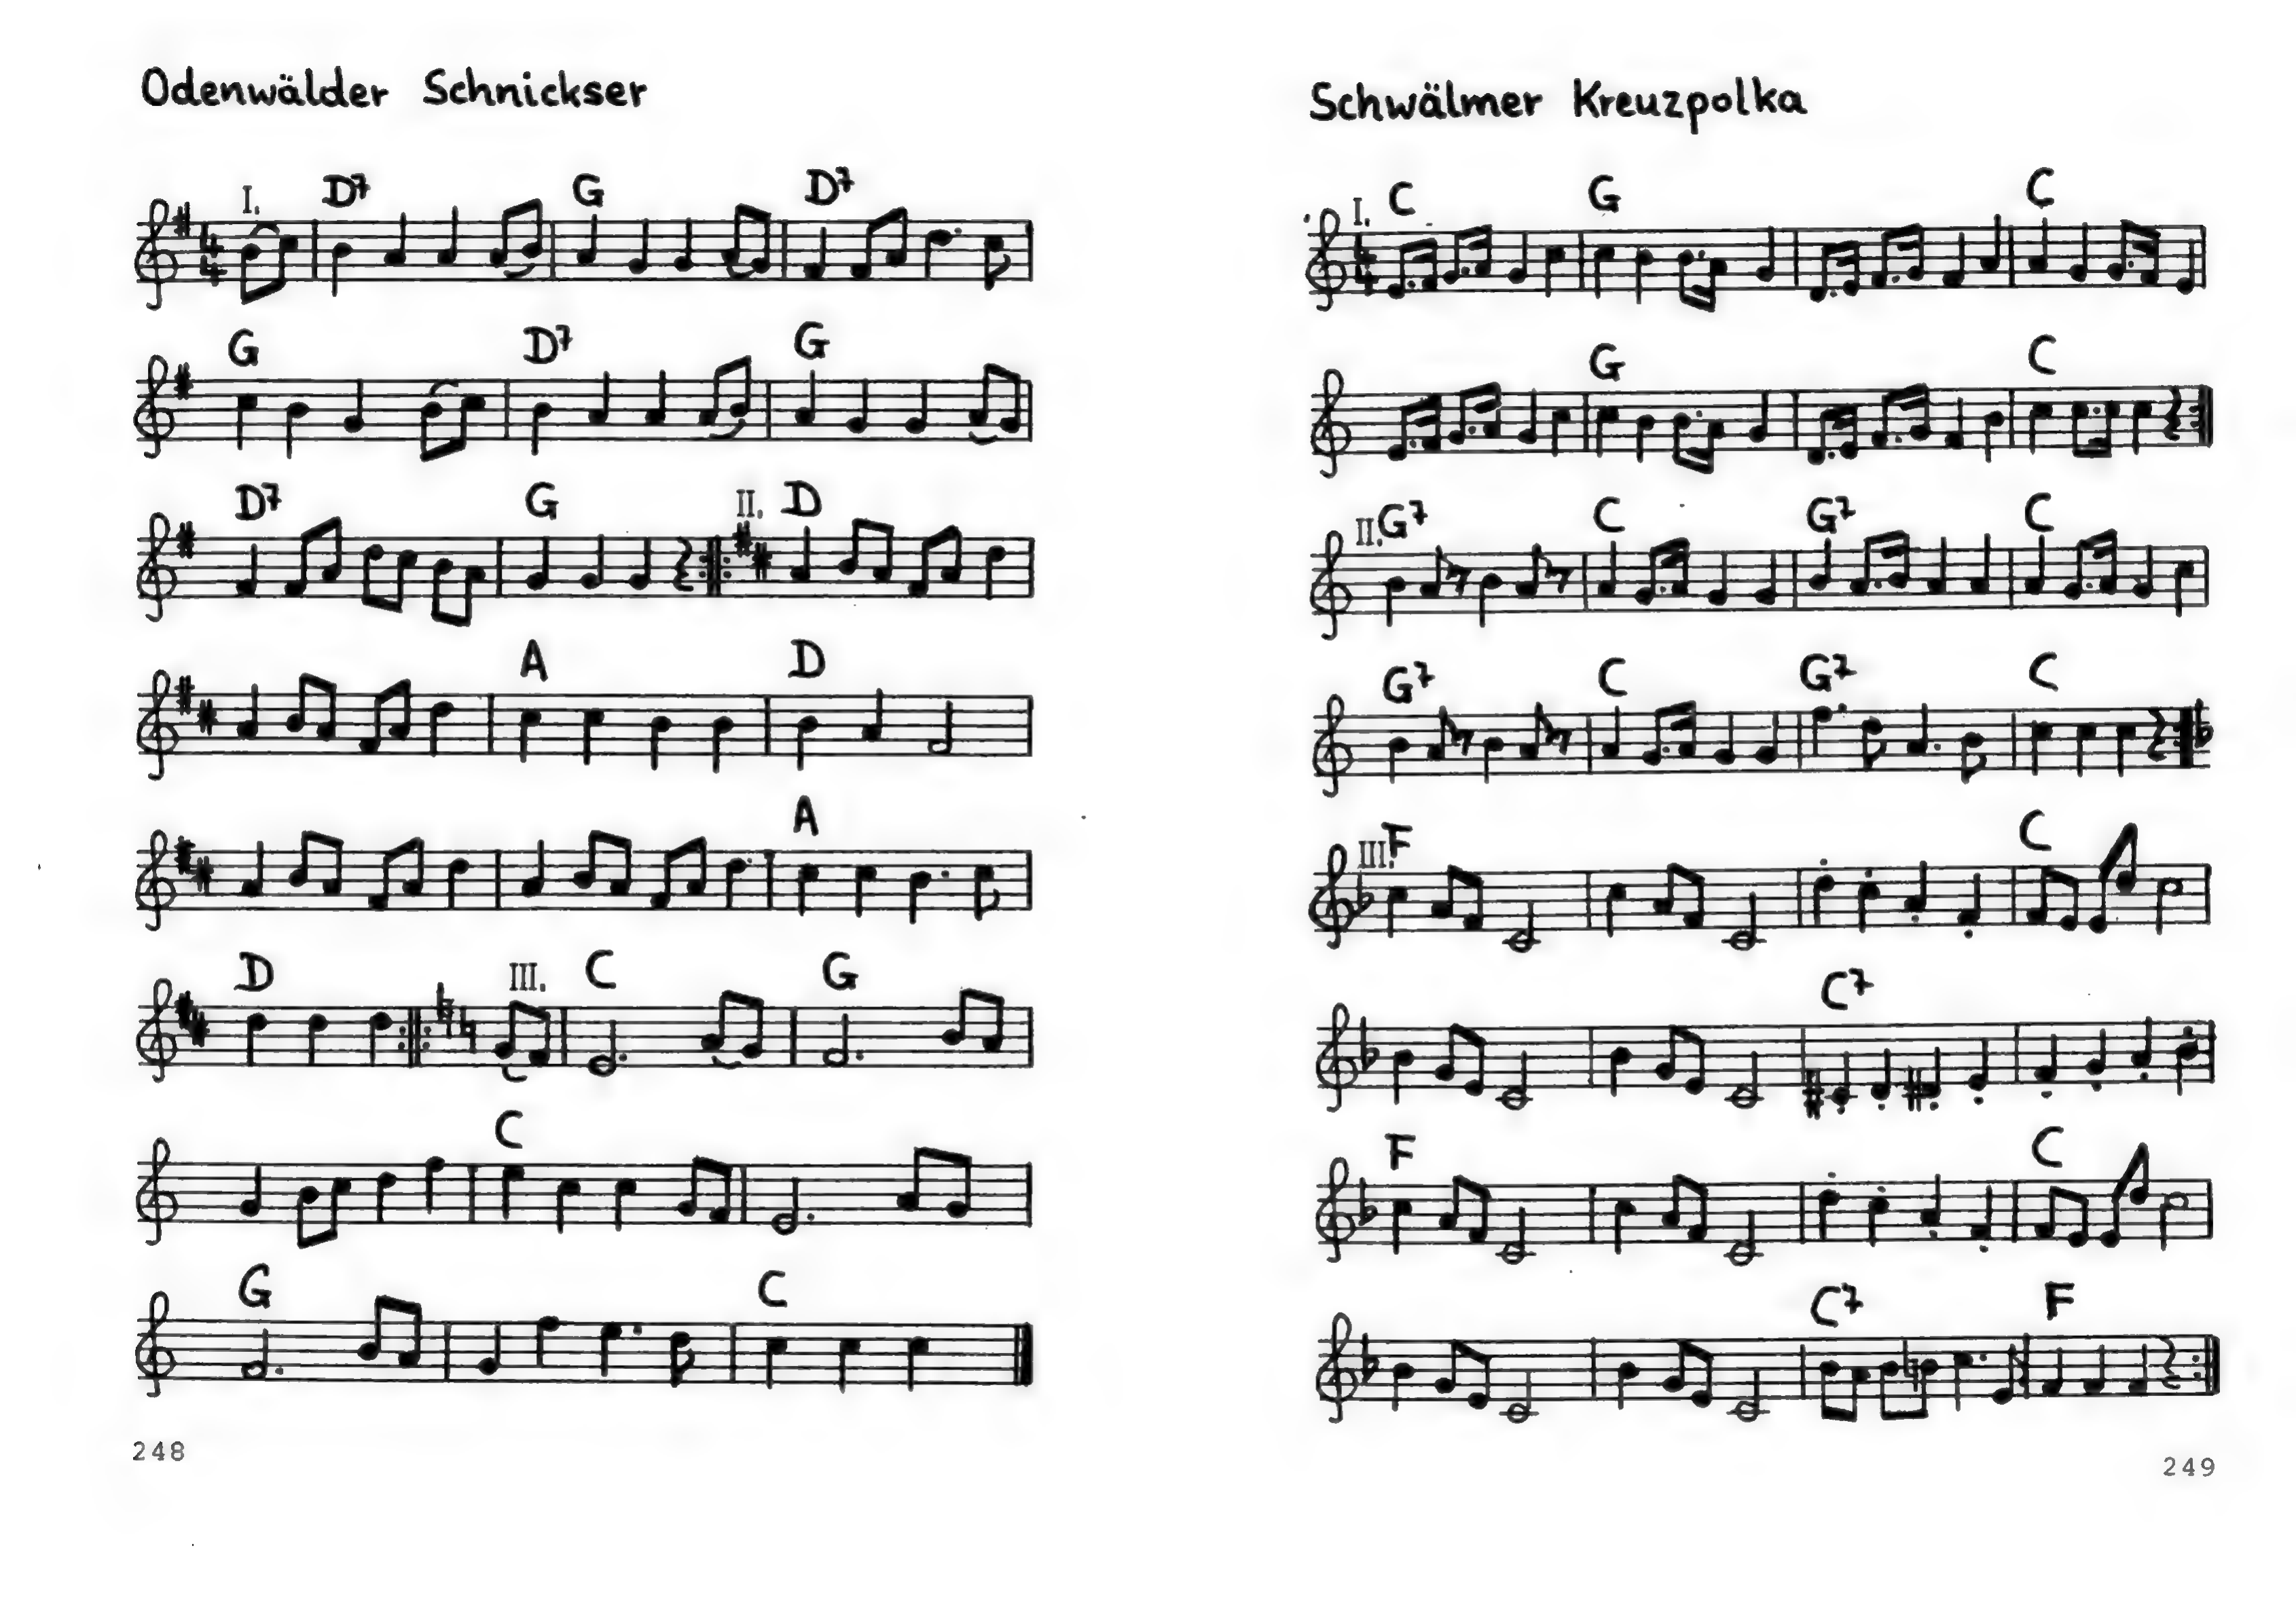 Odenwälder Schnickser
I. D7 G D7
4 4
G D7 G
D7 G II. D
A D
A
D III. C G
C
G C
248
Schwälmer Kreuzpolka
I. C G C
4 4
G C
II. G7 C G7 C
G7 C G7 C
III. F C
C7
F C
C7 F
249